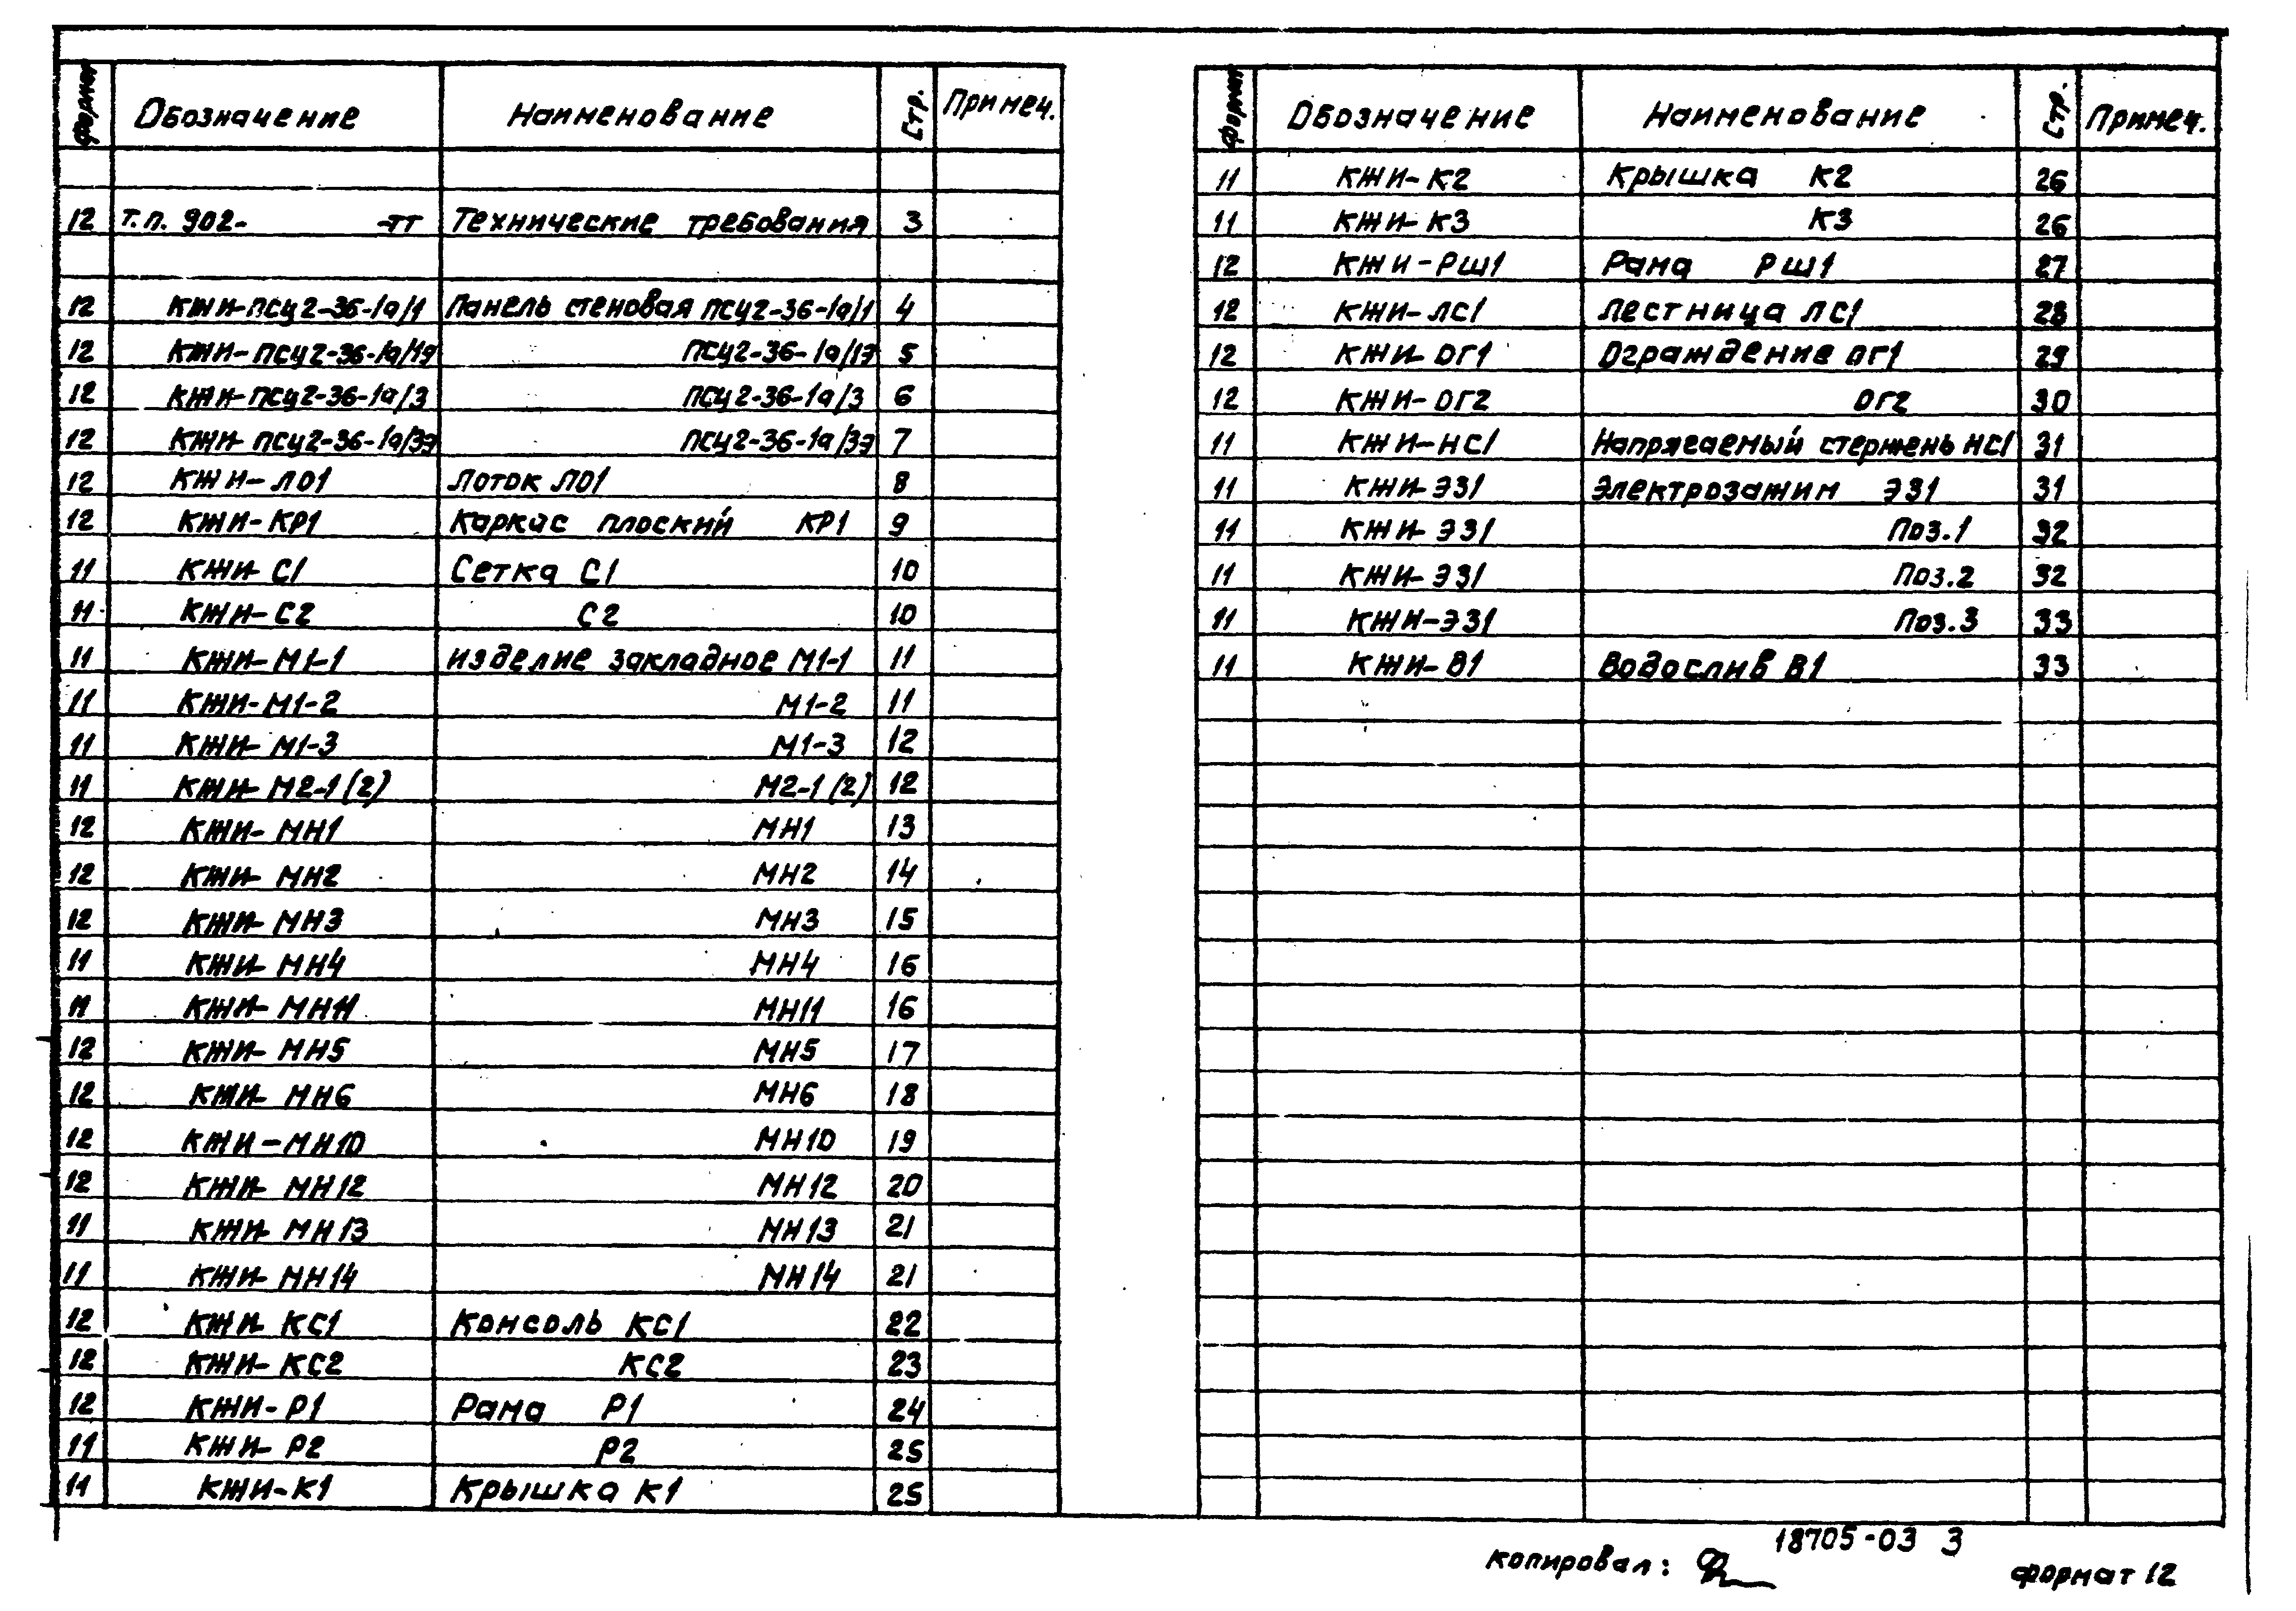 формат Обозначение Наименование Стр. Примеч.
12 т.п. 902- -ТТ Технические требования 3
12 КЖИ-ПСЦ2-36-1а/1 Панель стеновая ПСЦ2-36-1а/1 4
12 КЖИ-ПСЦ2-36-1а/1э ПСЦ2-36-1а/1э 5
12 КЖИ-ПСЦ2-36-1а/3 ПСЦ2-36-1а/3 6
12 КЖИ-ПСЦ2-36-1а/3э ПСЦ2-36-1а/3э 7
12 КЖИ-ЛО1 Лоток ЛО1 8
12 КЖИ-КР1 Каркас плоский КР1 9
11 КЖИ-С1 Сетка С1 10
11 КЖИ-С2 С2 10
11 КЖИ-М1-1 Изделие закладное М1-1 11
11 КЖИ-М1-2 М1-2 11
11 КЖИ-М1-3 М1-3 12
11 КЖИ-М2-1(2) М2-1(2) 12
12 КЖИ-МН1 МН1 13
12 КЖИ-МН2 МН2 14
12 КЖИ-МН3 МН3 15
11 КЖИ-МН4 МН4 16
11 КЖИ-МН11 МН11 16
12 КЖИ-МН5 МН5 17
12 КЖИ-МН6 МН6 18
12 КЖИ-МН10 МН10 19
12 КЖИ-МН12 МН12 20
11 КЖИ-МН13 МН13 21
11 КЖИ-МН14 МН14 21
12 КЖИ-КС1 Консоль КС1 22
12 КЖИ-КС2 КС2 23
12 КЖИ-Р1 Рама Р1 24
11 КЖИ-Р2 Р2 25
11 КЖИ-К1 Крышка К1 25
формат Обозначение Наименование Стр. Примеч.
11 КЖИ-К2 Крышка К2 26
11 КЖИ-К3 К3 26
12 КЖИ-РШ1 Рама РШ1 27
12 КЖИ-ЛС1 Лестница ЛС1 28
12 КЖИ-ОГ1 Ограждение ОГ1 29
12 КЖИ-ОГ2 ОГ2 30
11 КЖИ-НС1 Напрягаемый стержень НС1 31
11 КЖИ-ЭЗ1 Электрозажим ЭЗ1 31
11 КЖИ-ЭЗ1 Поз.1 32
11 КЖИ-ЭЗ1 Поз.2 32
11 КЖИ-ЭЗ1 Поз.3 33
11 КЖИ-В1 Водослив В1 33
18705-03 3
копировал: формат 12